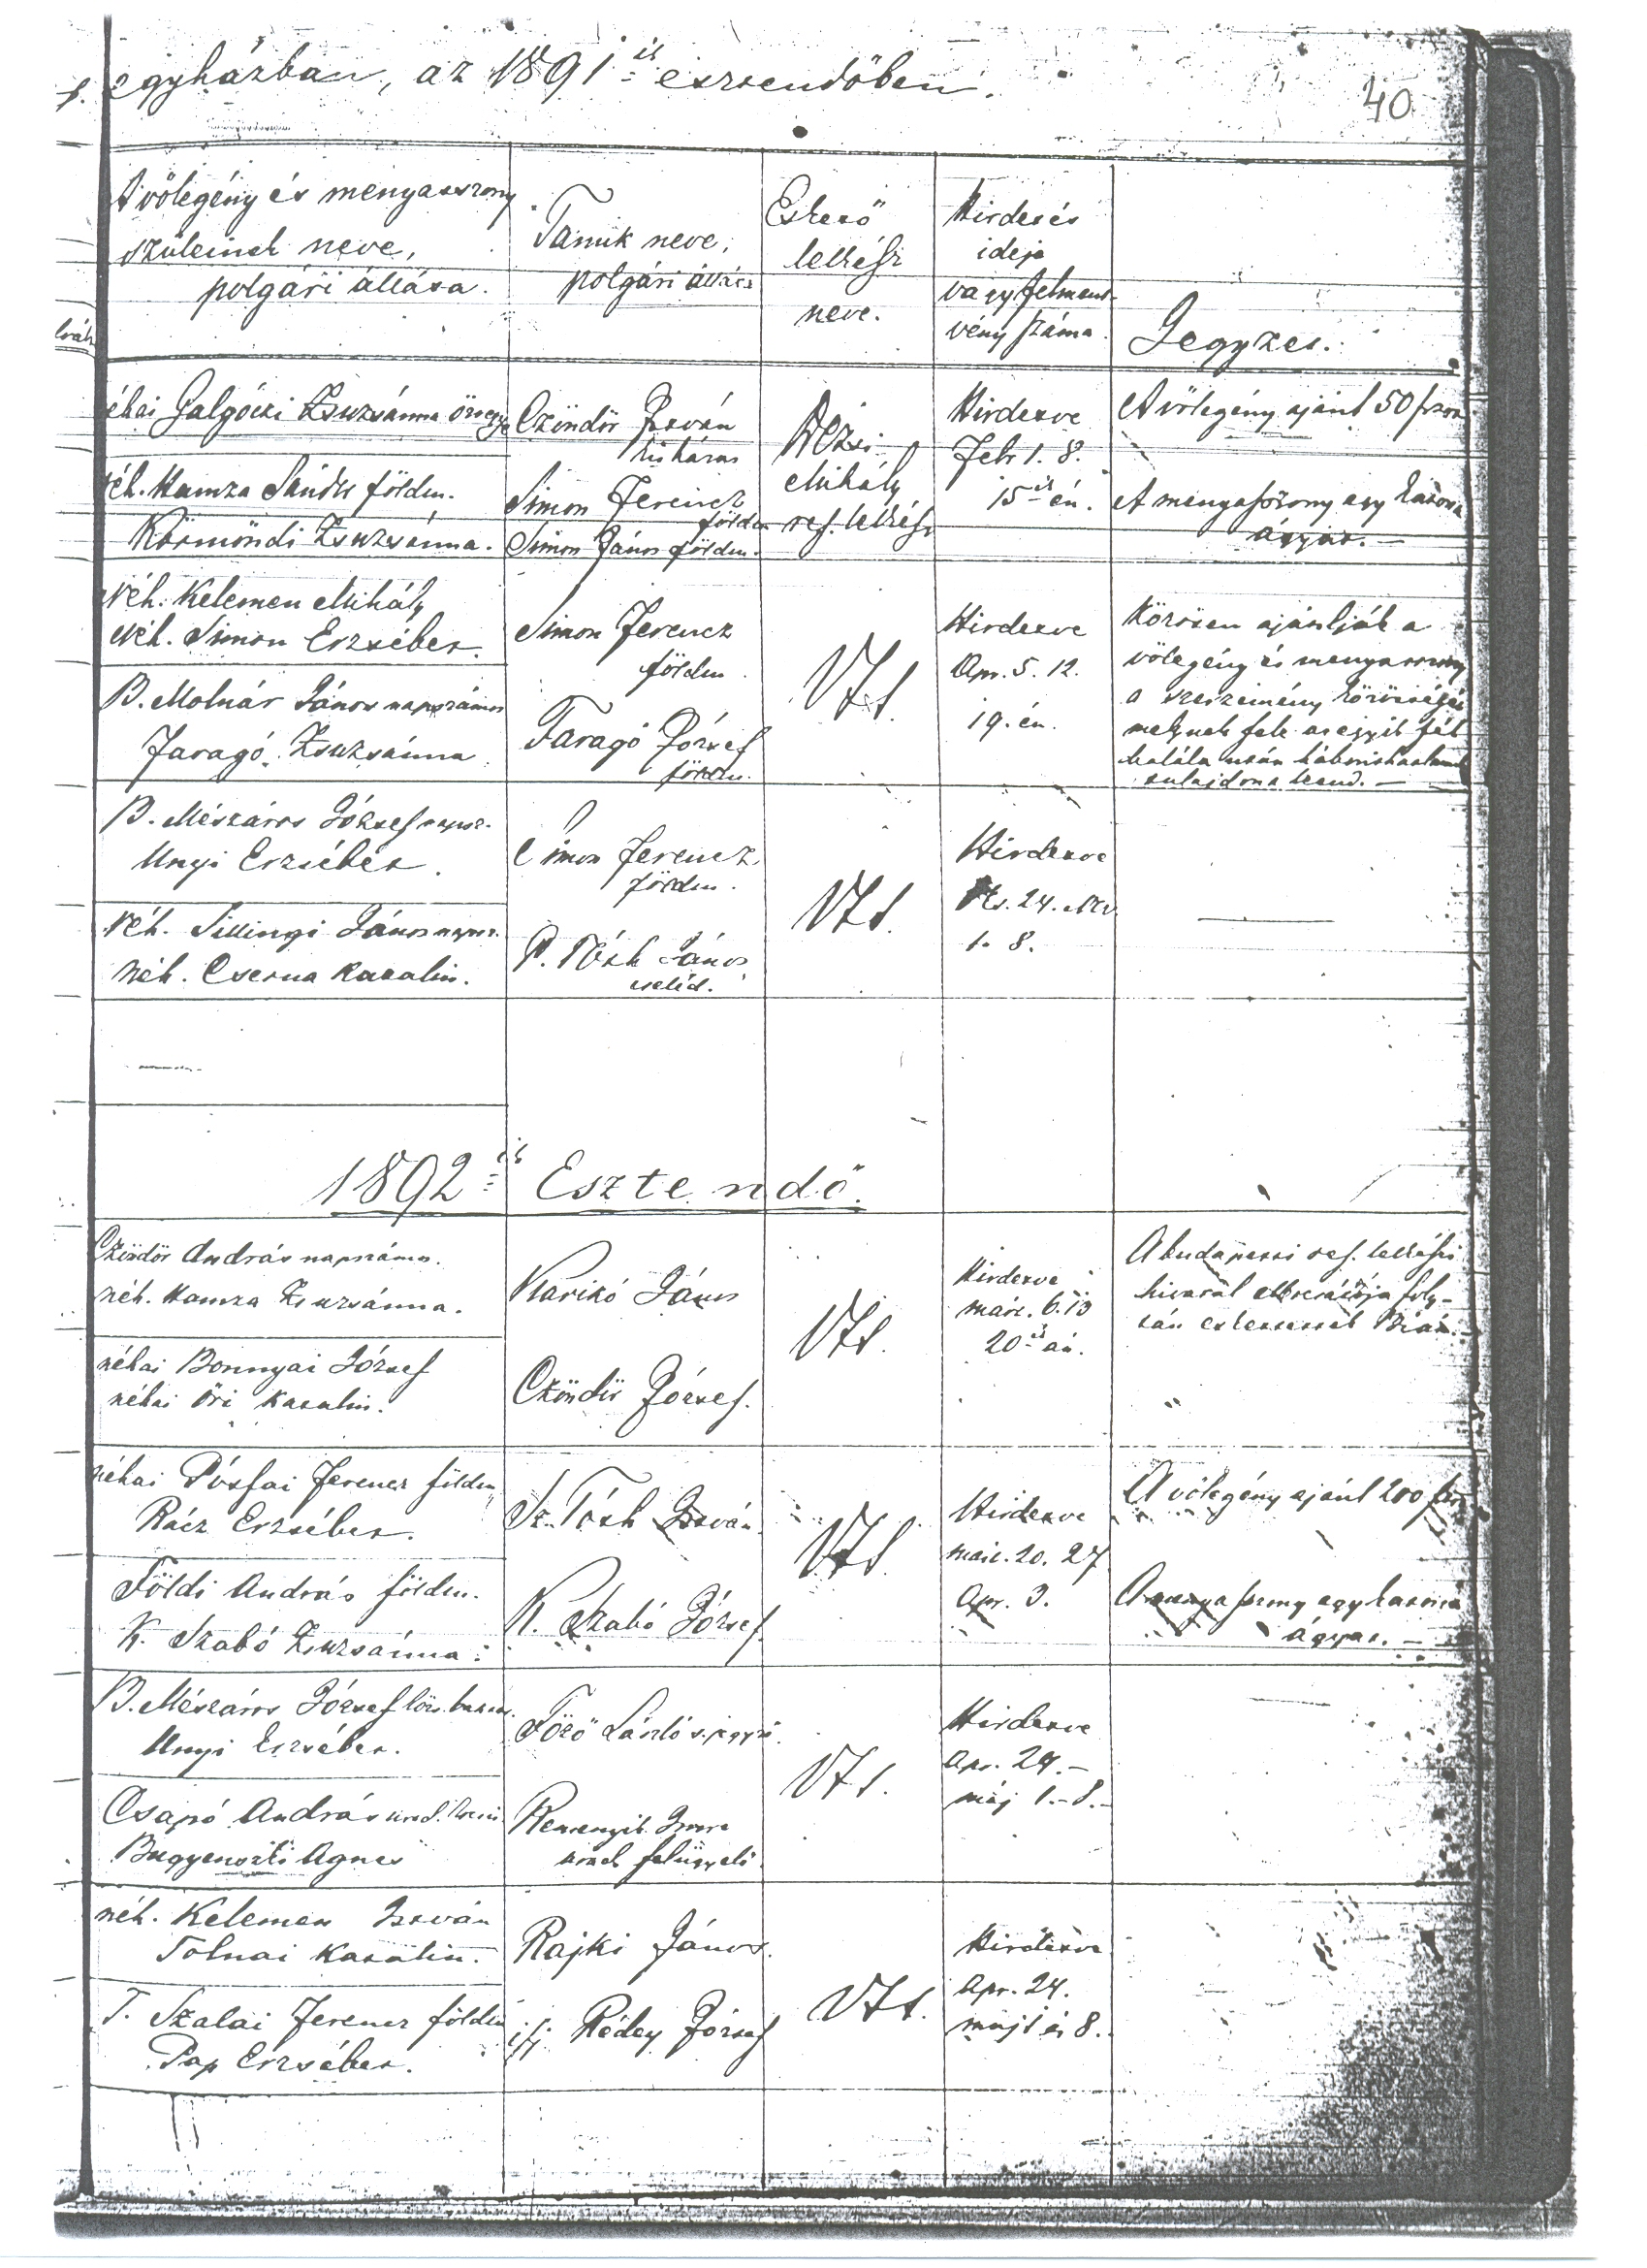 f. egyházban, az 1891 ik esztendőben.
40
A vőlegény és menyasszony
szüleinek neve,
polgári állása.
Tanuk neve,
polgári állása
Eskető
lelkész
neve.
Hirdetés
ideje
vagy felment-
vény száma
Jegyzet.
néhai Galgóczi Zsuzsánna özvegye
néh. Hamza Sándor földm.
Körmöndi Zsuzsánna.
Czöndör István
kisháras
Simon Ferencz
földm
Simon János földm.
Mihály
ref. lelkész
Hirdetve
Febr 1. 8.
15 ik én.
A vőlegény ajánl 50 frtot
A menyasszony egy katona
ágyat. —
Néh. Kelemen Mihály
Néh. Simon Erzsébet.
B. Molnár János napszámos
Faragó Zsuzsánna
Simon Ferencz
földm
Faragó József
földm.
Vts
Hirdetve
Apr. 5. 12.
19. én.
Közösen ajánlják a
vőlegény és menyasszony
a szerzemény közösségét
melynek fele az egyik fél
halála után háborithatlan
tulajdona leend. —
B. Mészáros József napsz.
Unyi Erzsébet.
néh. Sillingi János napsz.
néh. Cserna Katalin.
Simon Ferencz
földm.
P. Tóth János
cseléd.
Vts.
Hirdetve
Okt. 24. Nov
1. 8.
1892 ik Esztendő.
Czöndör András napszámos.
néh. Hamza Zsuzsánna.
néhai Bonnyai József
néhai Őri Katalin.
Karikó János
Czöndör József.
Vts.
Hirdetve
márc. 6. 13
20 ik án.
A budapesti ref. lelkészi
hivatal elbocsátója foly-
tán eskettettek Bián.
néhai Pósfai Ferencz földm.
Rácz Erzsébet.
Földi András földm.
K. Szabó Zsuzsánna.
Sz. Tóth István
K. Szabó József.
Vts.
Hirdetve
márc. 20. 27
Apr. 3.
A vőlegény ajánl 200 frtot
A menyasszony egy katona
ágyat. —
B. Mészáros József
Unyi Erzsébet.
Csapó András
Ágnes
Töző László s. jegyző.
Imre
felügyelő.
Vts.
Hirdetve
Apr. 24. —
máj 1. - 8. -
néh. Kelemen István
Tolnai Katalin.
T. Szalai Ferencz földm
Pap Erzsébet.
Rajki János.
ifj. Rédey József
Vts.
Hirdetve
Apr. 24.
máj 1 és 8.